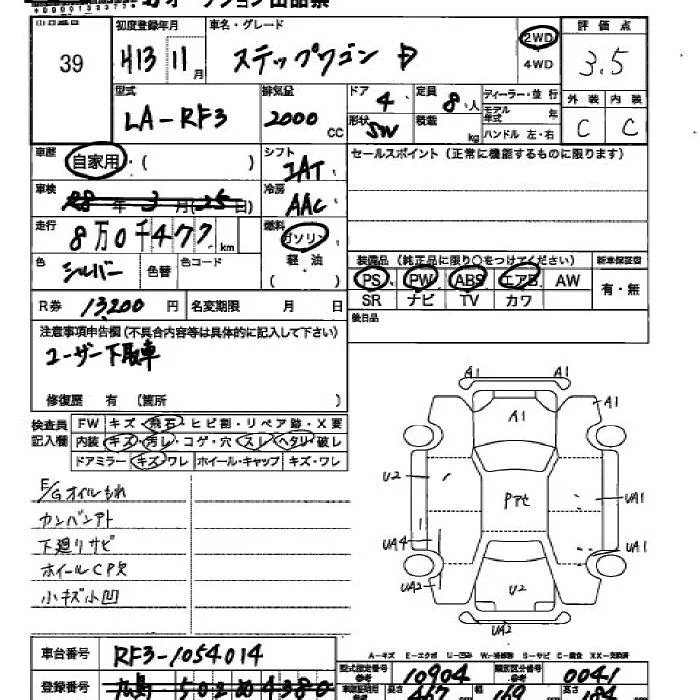 出品番号 39
初度登録年月 H13 11月
車名・グレード ステップワゴン D
2WD
4WD
評価点 3.5
外装 C 内装 C
型式 LA-RF3
排気量 2000 CC
ドア 4
形状 SW
定員 8人
積載 kg
ディーラー・並行
モデル年式 年
ハンドル 左・右
車歴 自家用・( )
シフト IAT
セールスポイント (正常に機能するものに限ります)
車検 年 3月(25日)
冷房 AAC
走行 8万0千477km
燃料 ガソリン
軽・油
( )
色 シルバー 色替 色コード
装備品 (純正品に限り○をつけてください)
新車保証書
PS PW ABS エアB AW
有・無
SR ナビ TV カワ
R券 13200円 名変期限 月 日
後日品
注意事項申告欄(不具合内容等は具体的に記入して下さい)
ユーザー下取車
修復歴 有 (箇所 )
検査員記入欄
FW キズ・飛石・ヒビ割・リペア跡・X要
内装 キズ・汚レ・コゲ・穴・スレ・ヘタリ・破レ
ドアミラー キズ・ワレ ホイール・キャップ キズ・ワレ
E/Gオイルもれ
カンバンアト
下廻リサビ
ホイールCP欠
小キズ小凹
A1 A1
A1 A1
U2
Pアセ
UA1
UA4
UA1
UA2
U2
UA2
A-キズ E-エクボ U-凹み W-補修跡 S-サビ C-腐食 XX-交換済
車台番号 RF3-1054014
型式指定番号 参考 10904
類別区分番号 参考 0041
登録番号 広島 502 4380
車庫証明用 参考 長さ 467 幅 169 高さ 184